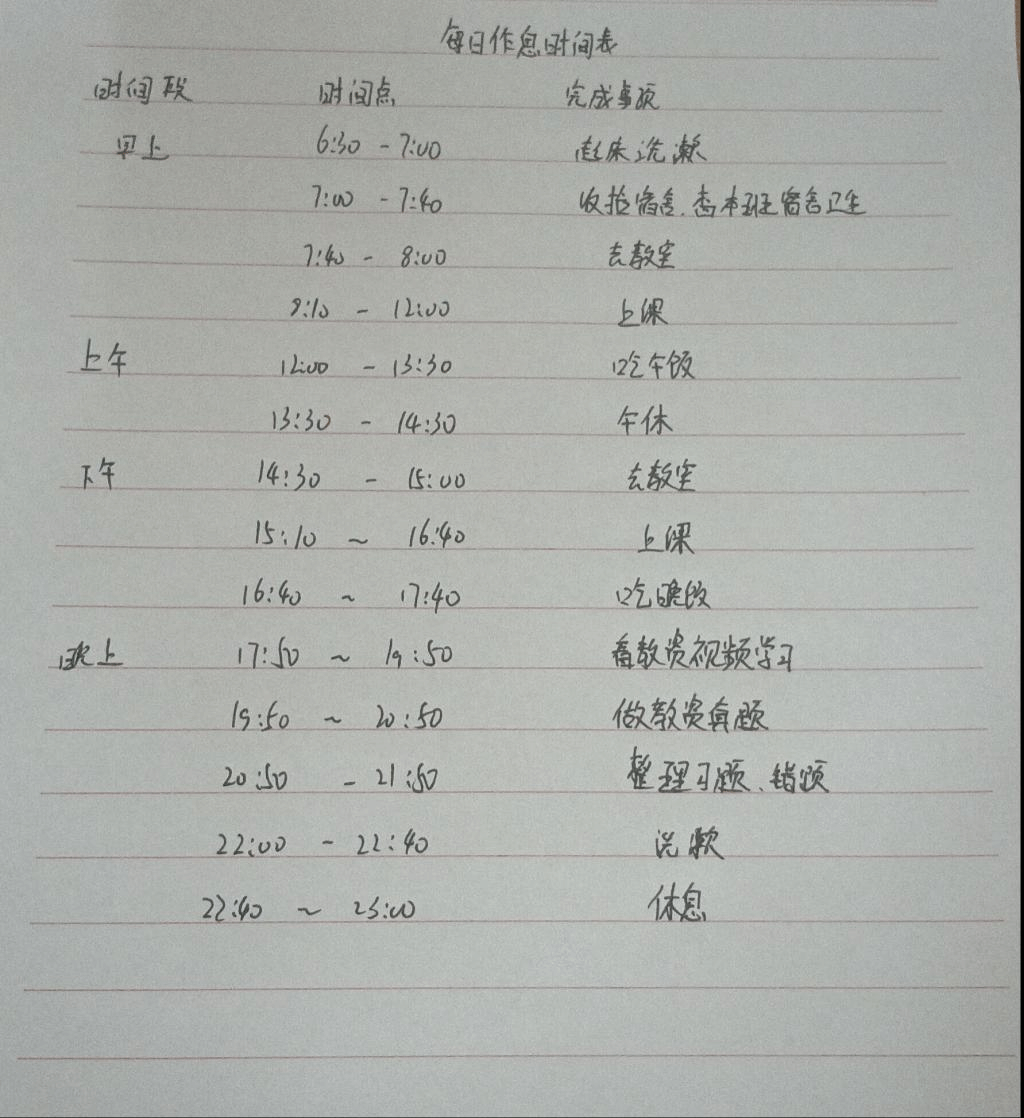 每日作息时间表
时间段 时间点 完成事项
早上 6:30 - 7:00 起床洗漱
7:00 - 7:40 收拾宿舍、查本班宿舍卫生
7:40 - 8:00 去教室
8:10 - 12:00 上课
上午 12:00 - 13:30 吃午饭
13:30 - 14:30 午休
下午 14:30 - 15:00 去教室
15:10 ~ 16:40 上课
16:40 ~ 17:40 吃晚饭
晚上 17:50 ~ 19:50 看教资视频学习
19:50 ~ 20:50 做教资真题
20:50 - 21:50 整理习题、错题
22:00 - 22:40 洗漱
22:40 ~ 23:00 休息